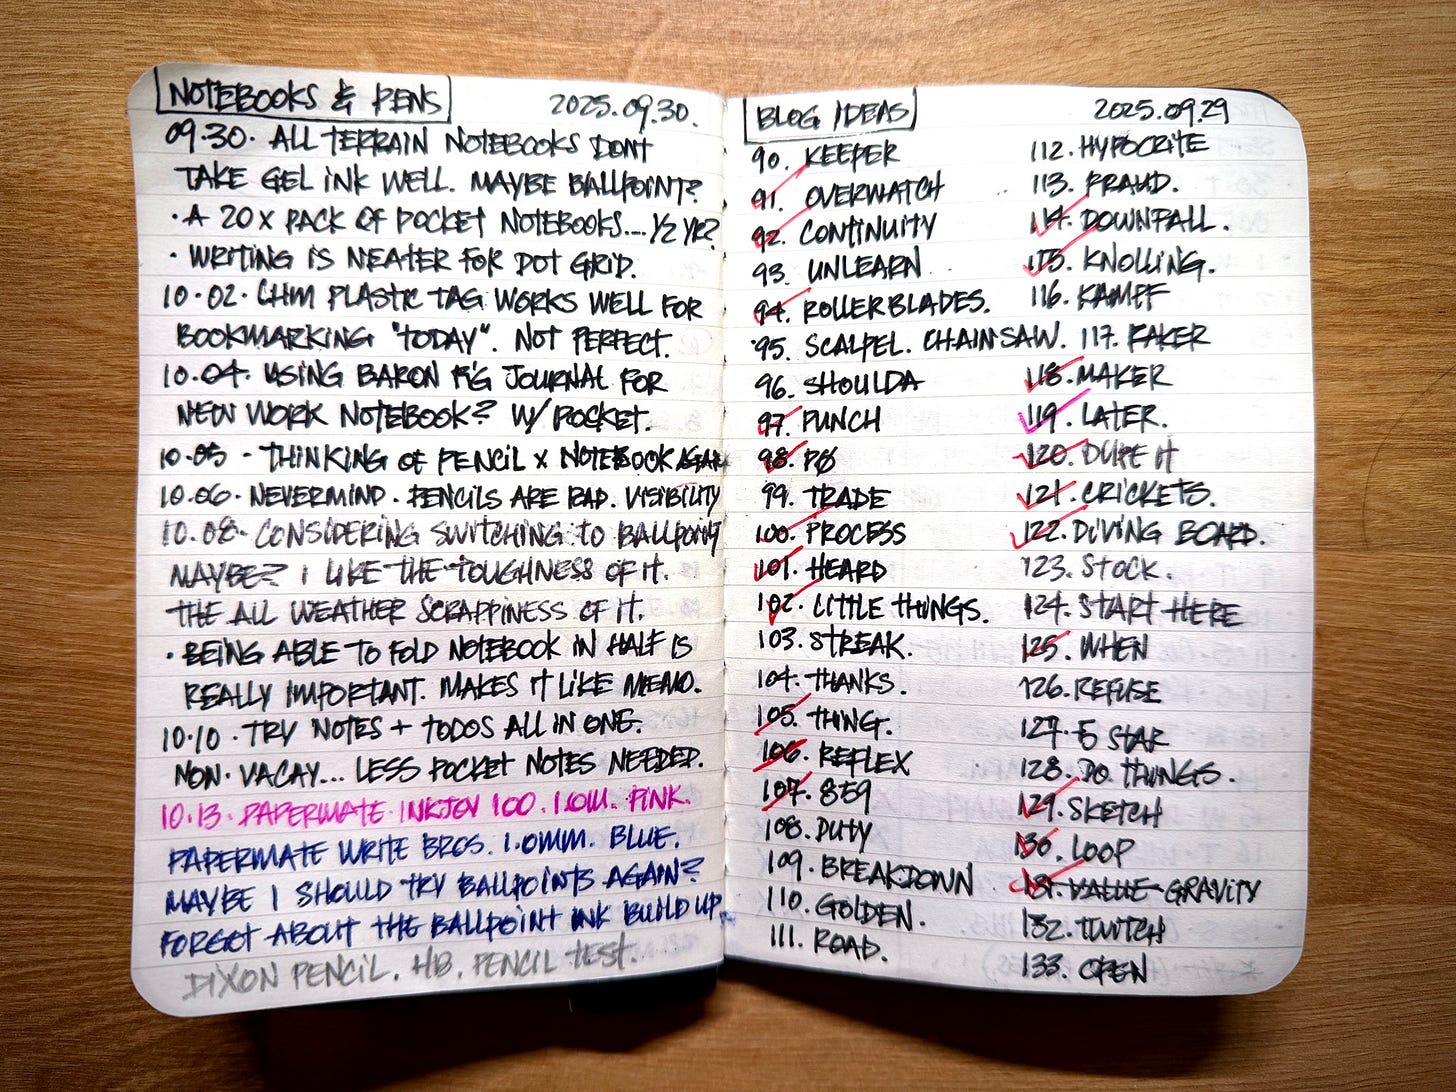 NOTEBOOKS & PENS 2025.09.30.
09.30. ALL TERRAIN NOTEBOOKS DONT
TAKE GEL INK WELL. MAYBE BALLPOINT?
· A 20 X PACK OF POCKET NOTEBOOKS.... 1/2 YR?
· WRITING IS NEATER FOR DOT GRID.
10.02. CHM PLASTIC TAG WORKS WELL FOR
BOOKMARKING "TODAY". NOT PERFECT.
10.04. USING BARON FIG JOURNAL FOR
NEW WORK NOTEBOOK? W/ POCKET.
10.05 - THINKING OF PENCIL X NOTEBOOK AGAIN
10.06. NEVERMIND. PENCILS ARE BAD. VISIBILITY
10.08. CONSIDERING SWITCHING TO BALLPOINT
MAYBE? I LIKE THE TOUGHNESS OF IT.
THE ALL WEATHER SCRAPPINESS OF IT.
· BEING ABLE TO FOLD NOTEBOOK IN HALF IS
REALLY IMPORTANT. MAKES IT LIKE MEMO.
10.10. TRY NOTES + TODOS ALL IN ONE.
NON. VACAY... LESS POCKET NOTES NEEDED.
10.13. PAPERMATE INKJOY 100. 1.0M. PINK.
PAPERMATE WRITE BROS. 1.0MM. BLUE.
MAYBE I SHOULD TRY BALLPOINTS AGAIN?
FORGOT ABOUT THE BALLPOINT INK BUILD UP
DIXON PENCIL. HB. PENCIL TEST.
BLOG IDEAS 2025.09.29
90. KEEPER
91. OVERWATCH
92. CONTINUITY
93. UNLEARN
94. ROLLERBLADES.
95. SCALPEL. CHAINSAW.
96. SHOULDA
97. PUNCH
98. PØ
99. TRADE
100. PROCESS
101. HEARD
102. LITTLE THINGS.
103. STREAK.
104. THANKS.
105. THING.
106. REFLEX
107. 859
108. DUTY
109. BREAKDOWN
110. GOLDEN.
111. ROAD.
112. HYPOCRITE
113. FRAUD.
114. DOWNFALL.
115. KNOLLING.
116. KAMPF
117. FAKER
118. MAKER
119. LATER.
120. DUPE IT
121. CRICKETS.
122. DIVING BOARD.
123. STOCK.
124. START HERE
125. WHEN
126. REFUSE
127. 5 STAR
128. DO THINGS.
129. SKETCH
130. LOOP
131. VALUE GRAVITY
132. TWITCH
133. OPEN